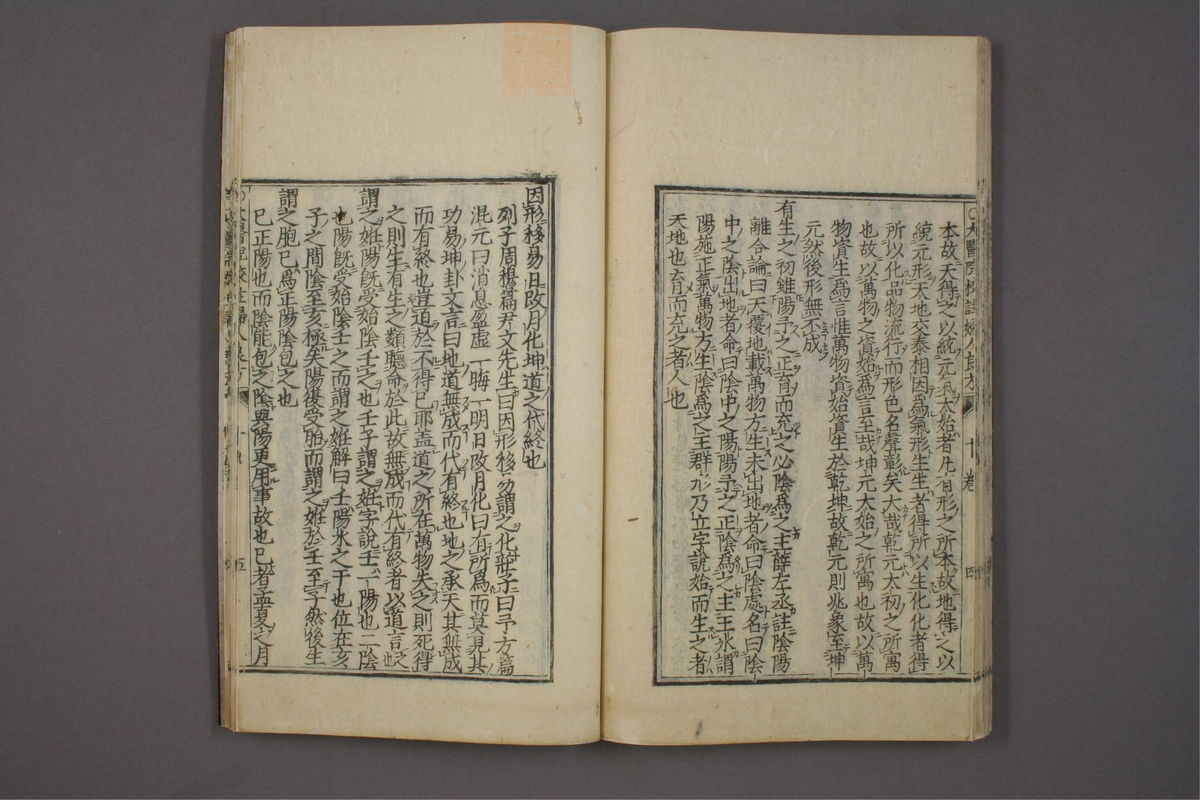 本故天得之以統元氣太始者凡有形之所本故地得之以
統元形天地交泰相因爲氣形生生者得所以生化化者得
所以化品物流行而形色名聲彰矣大哉乾元太初之所寓
也故以萬物之資始爲言至哉坤元太始之所寓也故以萬
物資生爲言惟萬物資始資生於乾坤故乾元則兆象至坤
元然後形無不成
有生之初雖陽予之正育而充之必陰爲之主薛左丞註陰陽
離合論曰天覆地載萬物方生未出地者命曰陰處名曰陰
中之陰出地者命曰陰中之陽陽予之正陰爲之主王氷謂
陽施正氣萬物方生陰爲之主群形乃立字說始而生之者
天地也育而充之者人也
十卷
四
因形移易日改月化坤道之代終也
列子周穆篇尹文先生曰因形移易謂之化莊子曰子方篇
混元曰消息盈虛一晦一明日改月化日有所爲而莫見其
功易坤卦文言曰地道無成而代有終也地之承天其無成
而有終也豈迫於不得已耶蓋道之所在萬物失之則死得
之則生有生之類聽命於此故無成而代有終者以道言之也
謂之姙陽既受始陰壬之也壬子謂之姙字說壬一陽也二陰
也陽既受始陰壬之而謂之姙解曰壬陽水之干也位在亥
子之間陰至亥極矣陽復受胎而謂之姙於壬至子然後生
謂之胞已爲正陽陰包之也
巳正陽也而陰能包之陰與陽更用事故也巳者孟夏之月
五